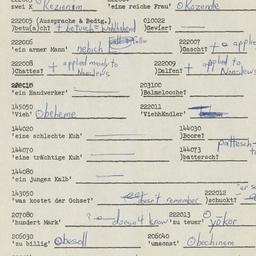 zwei X Kozionim 'eine reiche Frau' Okozende
222005 (Aussprache & Bedtg.) 010022
)betu(a)cht + betuch= )Gevier?
222006 222007
'ein armer Mann' nebich )Gascht? + applie
222008 + applied mainly to 222009 + applied to
)Chattes? NonJews )Dalfen? NonJews
203100
'ein Handwerker' )Balmelooche?
145050 222011
'Vieh' Obeheme 'Viehhändler'
144020 144030
'eine schlechte Kuh' )Boore?
144070 144073 pattesch-
'eine trächtige Kuh' )battersch?
144080
'ein junges Kalb'
143050 222012
'was kostet der Ochse?' doesn't remember )schuckt?
207080 222013
'hundert Mark' ? doesn't know 'zu teuer' Oyokor
206030 206040
'zu billig' Obesoll 'umsonst' Obechinem